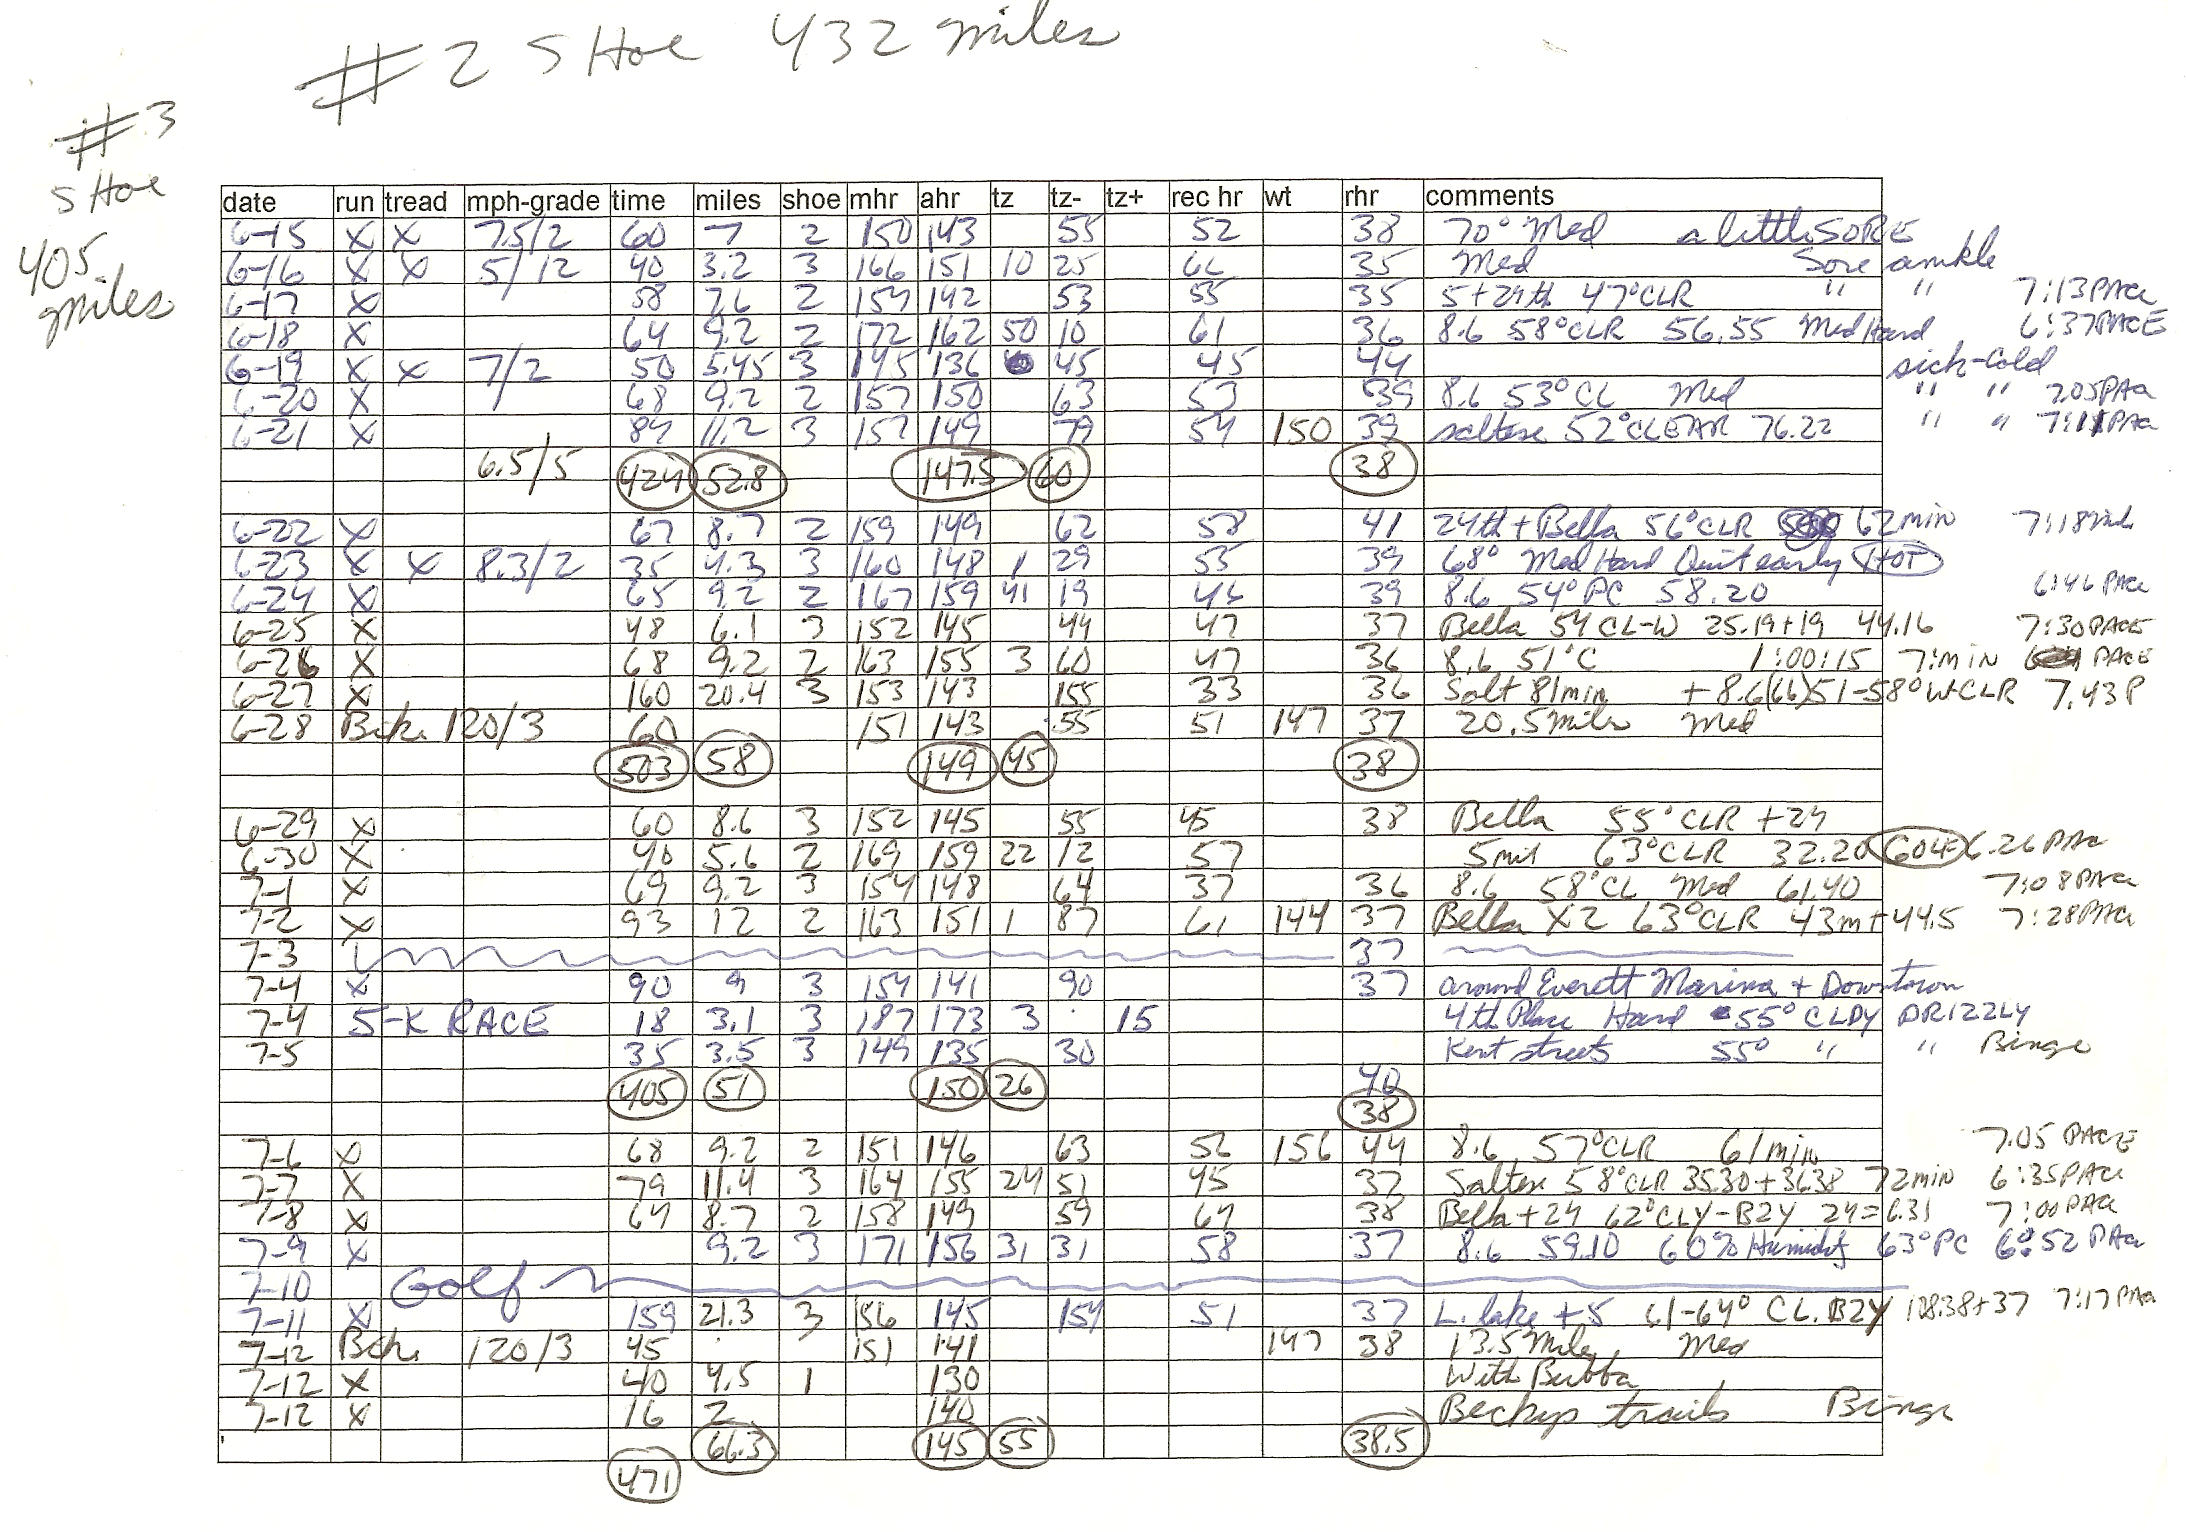 #2 SHoe 432 miles
#3
SHoe
405
miles
date run tread mph-grade time miles shoe mhr ahr tz tz- tz+ rec hr wt rhr comments
6-15 X X 7.5/2 60 7 2 150 143 55 52 38 70° Med a little SORE
6-16 X X 5/12 40 3.2 3 166 151 10 25 35 Med Sore
6-17 X 58 7.6 2 142 53 55 35 5+24th 47°CLR " " 7:13 PACE
6-18 X 64 9.2 2 172 162 50 10 61 36 8.6 58°CLR 56.55 Med Hard 6:37 PACE
6-19 X X 7/2 50 5.45 3 145 136 45 45 44 sick-Cold
6-20 X 68 9.2 2 157 150 63 53 39 8.6 53°CL Med " " 7.05 PACE
6-21 X 84 11.2 3 157 149 79 54 150 39 saltese 52°CLEAR 76.22 " " 7:11 PACE
6.5/5 424 52.8 147.5 60 38
6-22 X 67 8.7 2 159 149 62 58 41 24th + Bella 56°CLR 62 min 7:18
6-23 X X 8.3/2 35 4.3 3 160 148 1 29 55 39 68° Med Hard Quit early HOT
6-24 X 65 9.2 2 167 159 41 19 46 39 8.6 54° PC 58.20 6:46 PACE
6-25 X 48 6.1 3 152 145 44 47 37 Bella 54 CL-W 25.19+19 44.16 7:30 PACE
6-26 X 68 9.2 2 163 155 3 60 47 36 8.6 51°C 1:00:15 7:MIN PACE
6-27 X 160 20.4 3 153 143 155 33 36 Salt 81min + 8.6(66) 51-58° W-CLR 7.43 P
6-28 Bike 120/3 60 151 143 55 51 147 37 20.5 Miles Med
503 58 149 45 38
6-29 X 60 8.6 3 152 145 55 45 38 Bella 55°CLR +24
6-30 X 40 5.6 2 169 159 22 12 57 5 mil 63°CLR 32.20 6.26 PACE
7-1 X 69 9.2 3 154 148 64 37 36 8.6 58°CL Med 61.40 7:08 PACE
7-2 X 93 12 2 163 151 1 87 61 144 37 Bella X2 63°CLR 43m+44.5 7:28 PACE
7-3 37
7-4 X 90 9 3 154 141 90 37 around Everett Marina + Downtown
7-4 5-K RACE 18 3.1 3 187 173 3 15 4th Place Hard 55° CLDY DRIZZLY
7-5 35 3.5 3 149 135 30 Kent streets 55° " " Binge
40
405 51 150 26 38
7-6 X 68 9.2 2 151 146 63 156 44 8.6 57°CLR 61min 7.05 PACE
7-7 X 79 11.4 3 164 155 24 51 45 37 Saltese 58°CLR 3530+3638 72 min 6:35 PACE
7-8 X 64 8.7 2 158 149 59 64 38 Bella + 24 62°CLY-BZY 24=6.31 7:00 PACE
7-9 X 9.2 3 171 156 31 31 58 37 8.6 59.10 60% Humidity 63° PC 6:52 PACE
7-10 Golf
7-11 X 159 21.3 3 156 145 154 51 37 L. lake +5 61-64° CL. BZY 7:17 PACE
7-12 Bik. 120/3 45 151 141 147 38 13.5 Miles Med
7-12 X 40 4.5 1 130 With Bubba
7-12 X 16 2 140 Beckys trails Binge
66.3 145 55 38.5
471